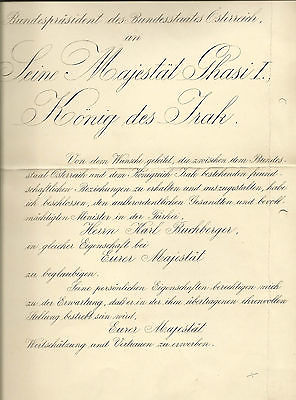 Bundespräsident des Bundesstaates Österreich,
an
Seine Majestät Ghasi I.,
König des Irak.
Von dem Wunsche geleitet, die zwischen dem Bundes-
staat Österreich und dem Königreich Irak bestehenden freund-
schaftlichen Beziehungen zu erhalten und auszugestalten, habe
ich beschlossen, den außerordentlichen Gesandten und bevoll-
mächtigten Minister in der Türkei
Herrn Karl Buchberger,
in gleicher Eigenschaft bei
Eurer Majestät
zu beglaubigen.
Seine persönlichen Eigenschaften berechtigen mich
zu der Erwartung, daß er in der ihm übertragenen ehrenvollen
Stellung bestrebt sein wird,
Eurer Majestät
Wertschätzung und Vertrauen zu erwerben.